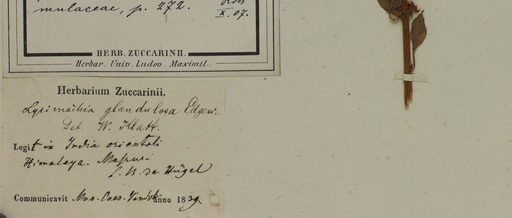 mulaceae, p. 272.
X. 07.
HERB. ZUCCARINII.
Herbar. Univ. Ludov. Maximil.
Herbarium Zuccarinii.
Lysimachia glandulosa Edgew.
Det. W. Klatt.
Legit in India orientali
Himalaya. Massuri
L. B. de Hügel
Communicavit Mus. Caes. Vindob anno 1839